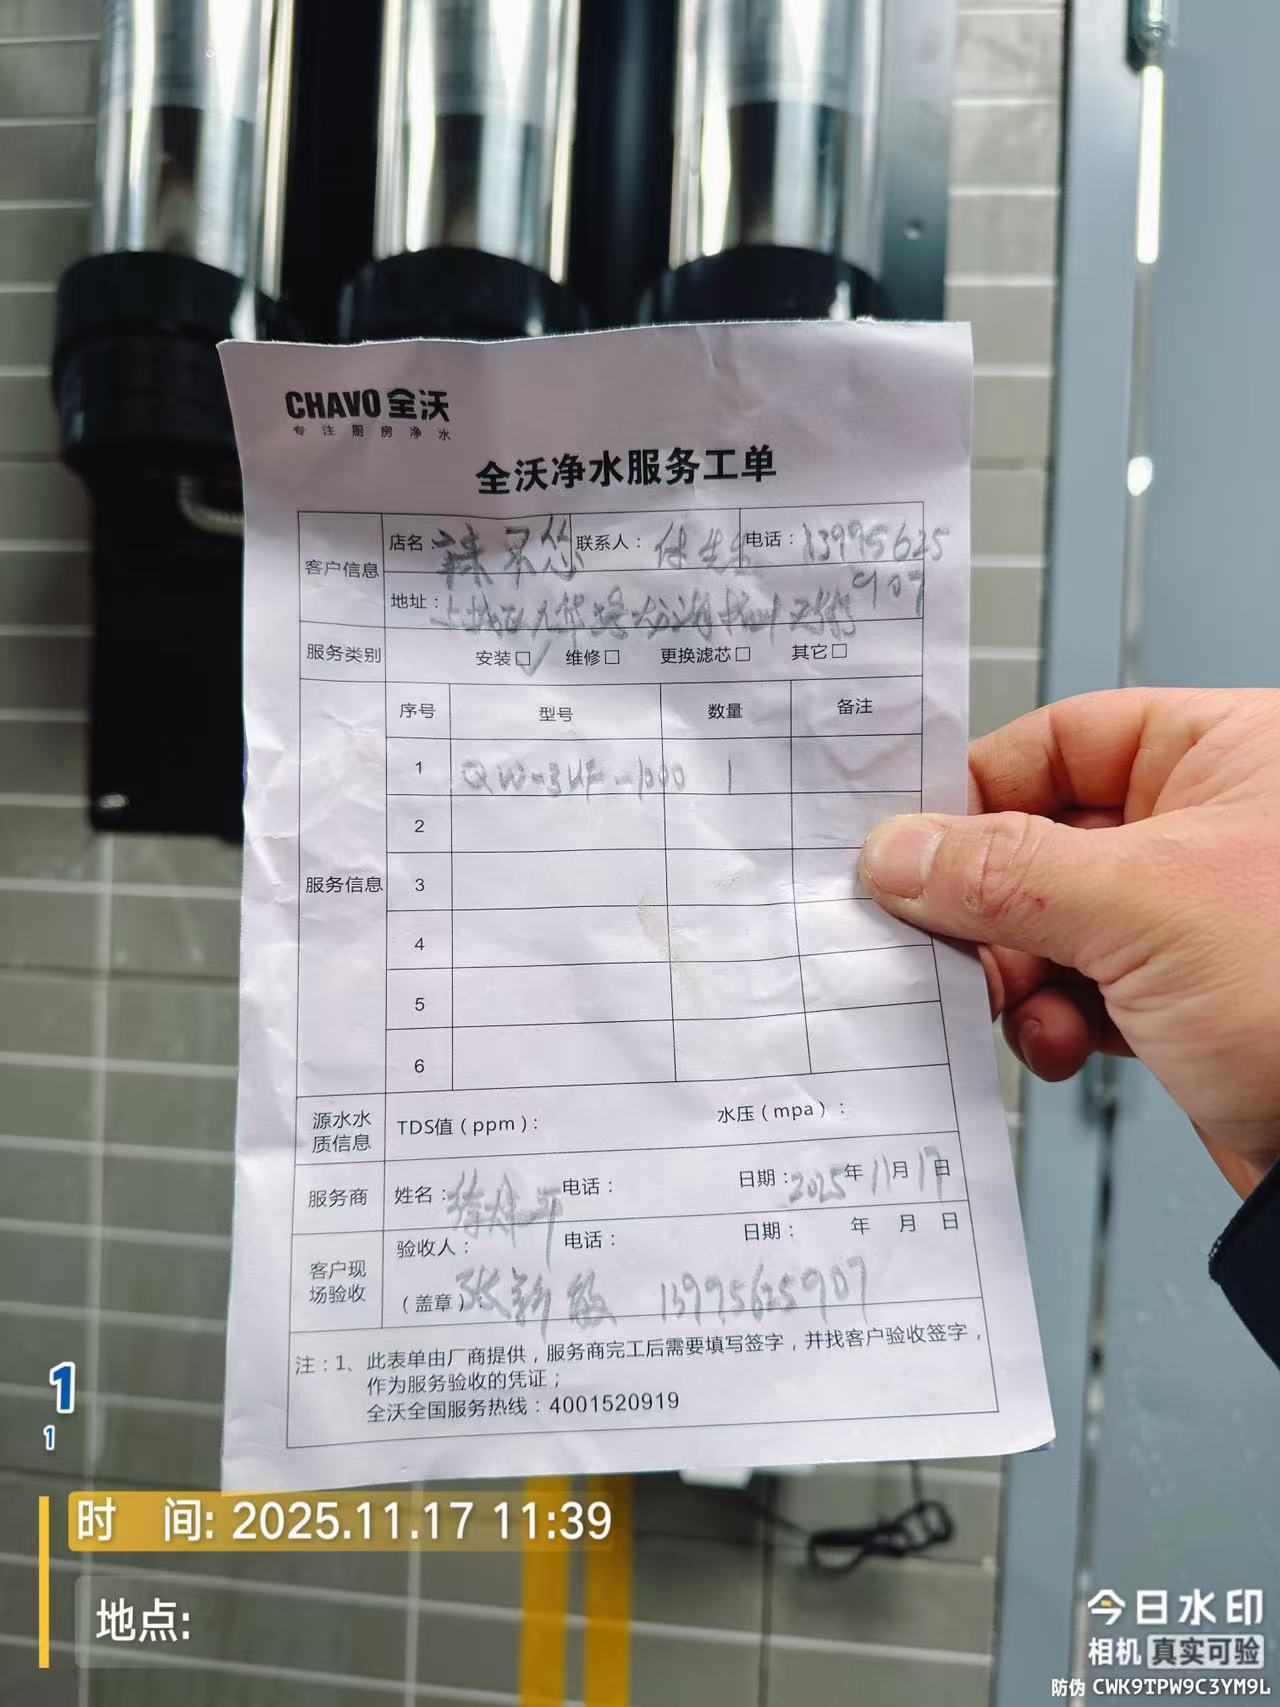 CHAVO 全沃
专注厨房净水
全沃净水服务工单
客户信息 店名：辣不怂 联系人： 付先生 电话：13995625907
地址：上城区
服务类别 安装□ 维修□ 更换滤芯□ 其它□
服务信息 序号 型号 数量 备注
1 QW-3UF-1000 1
2
3
4
5
6
源水水质信息 TDS值（ppm）： 水压（mpa）：
服务商 姓名：徐 电话： 日期：2025年11月17日
客户现场验收 验收人： 电话： 日期： 年 月 日
（盖章）：张新敏 13995625907
注：1、此表单由厂商提供，服务商完工后需要填写签字，并找客户验收签字，
作为服务验收的凭证；
全沃全国服务热线：4001520919
1
1
时 间: 2025.11.17 11:39
地点:
今日水印
相机 真实可验
防伪 CWK9TPW9C3YM9L